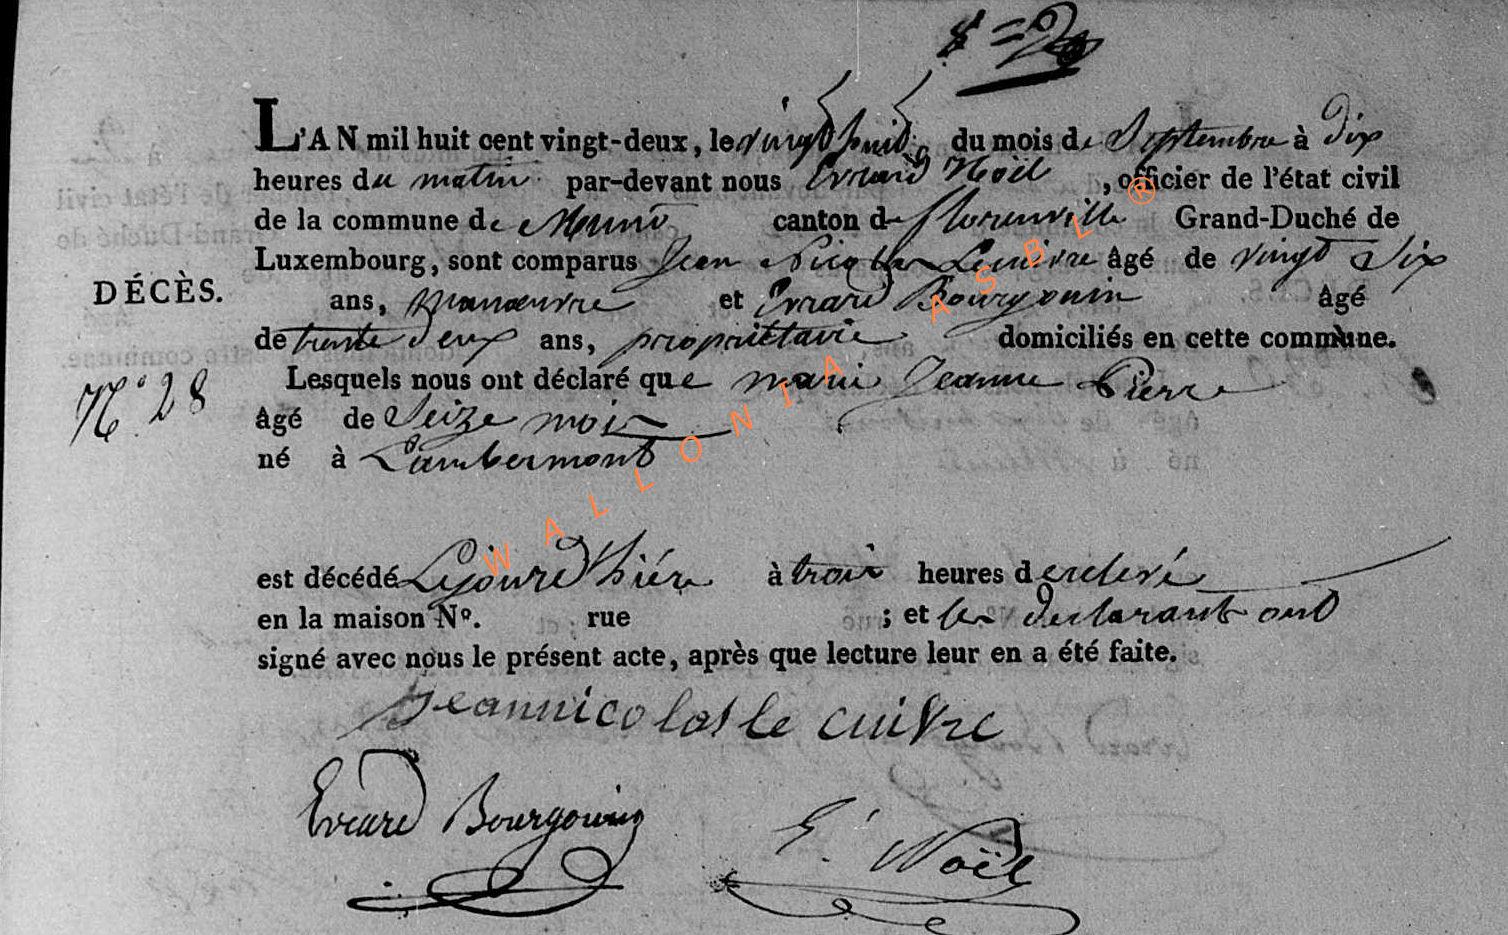 L'AN mil huit cent vingt-deux, le vingt huit du mois de Septembre à dix
heures du matin par-devant nous Evrard Noël, officier de l'état civil
de la commune de Muno canton de florenville Grand-Duché de
Luxembourg, sont comparus Jean Nicolas Lecuivre âgé de vingt Six
DÉCÈS.
ans, manœuvre et Evrard Bourgouin âgé
de trente deux ans, propriétaire domiciliés en cette commune.
N.° 28
Lesquels nous ont déclaré que marie Jeanne Pierre
âgé de Seize mois
né à Lambermont
est décédé Lejourd'hiér à trois heures de relevé
en la maison N°. rue ; et les declarant ont
signé avec nous le présent acte, après que lecture leur en a été faite.
jeannicolas le cuivre
Evrard Bourgouing
E. Noël
WALLONIA ASBL ®